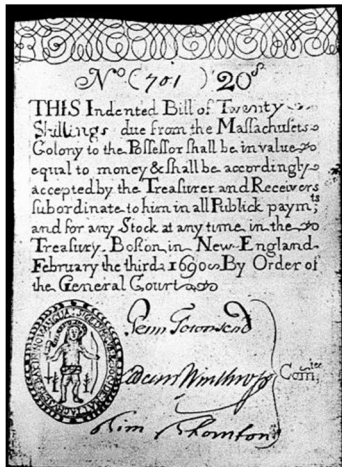 No (701) 20s
THIS Indented Bill of Twenty
Shillings due from the Massachusets
Colony to the Possessor shall be in value
equal to money & shall be accordingly
accepted by the Treasurer and Receivers
subordinate to him in all Publick paymts;
and for any Stock at any time in the
Treasury. Boston in New-England
February the third 1690 By Order of
the General Court
Penn Townsend
Adam Winthrop Comtee
Tim Thornton